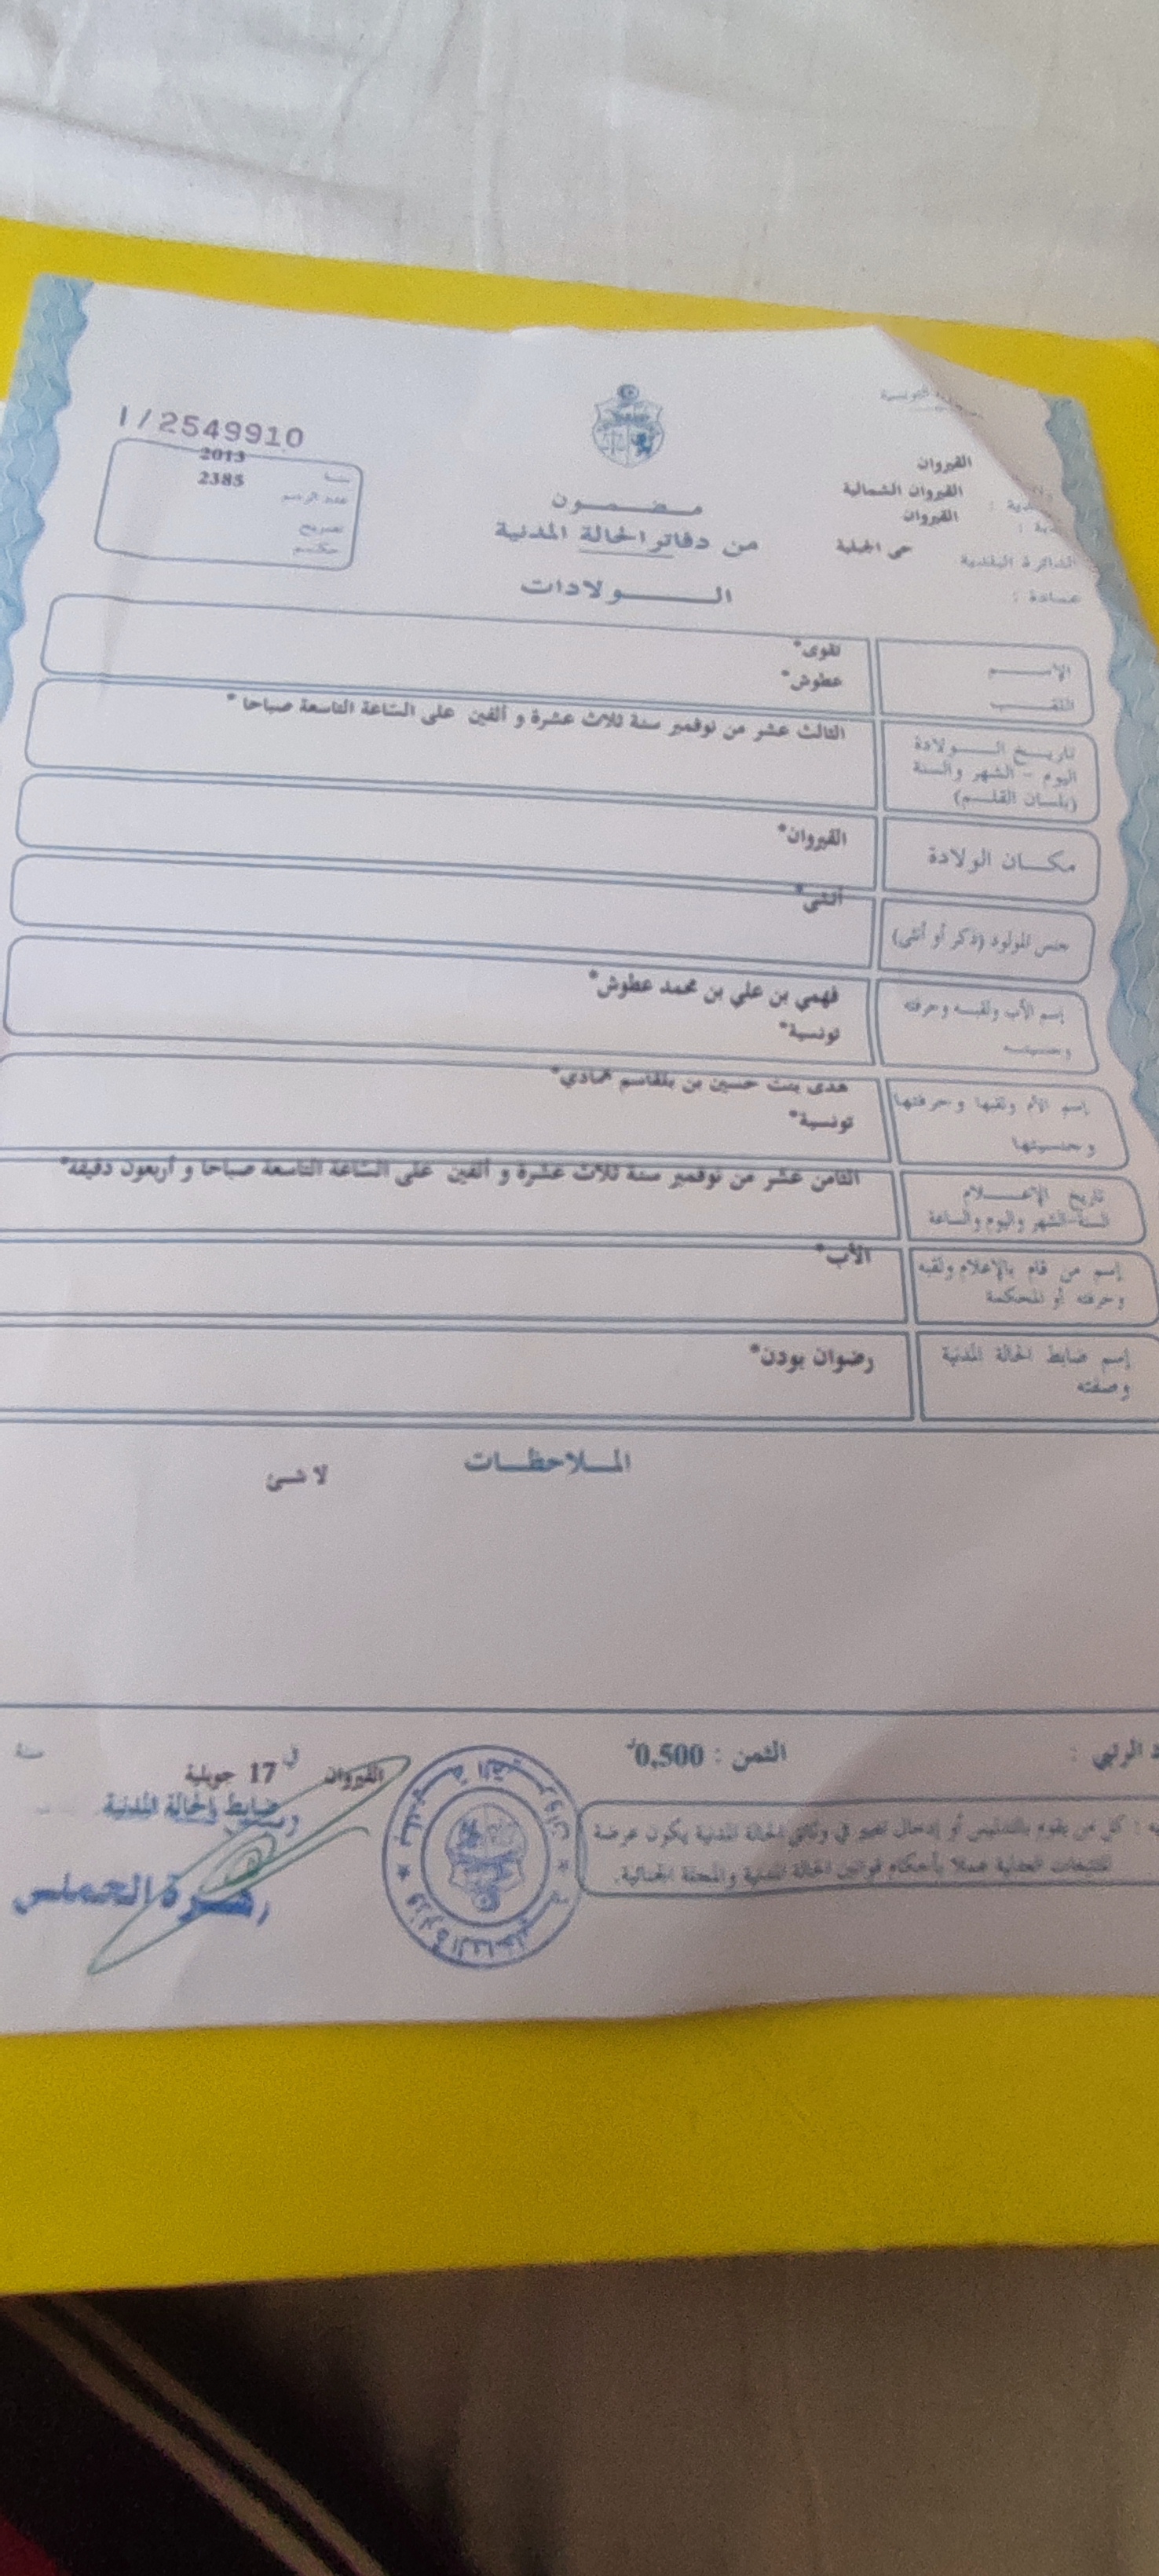 1/2549910
2013
سنة
2385
عدد الرسم
تصريح
حكم
القيروان
القيروان الشمالية
القيروان
حي الجبلية
عمادة :
مضمون
من دفاتر الحالة المدنية
الولادات
الإسم
تقوى*
اللقب
عطوش*
تاريخ الولادة
اليوم - الشهر والسنة
(بلسان القلم)
الثالث عشر من نوفمبر سنة ثلاث عشرة و ألفين على الساعة التاسعة صباحا *
مكان الولادة
القيروان*
جنس المولود (ذكر أو أنثى)
أنثى*
إسم الأب ولقبه وحرفته
وجنسيته
فهمي بن علي بن محمد عطوش*
تونسية*
إسم الأم ولقبها وحرفتها
وجنسيتها
هدى بنت حسين بن بلقاسم حمادي*
تونسية*
تاريخ الإعلام
السنة-الشهر واليوم والساعة
الثامن عشر من نوفمبر سنة ثلاث عشرة و ألفين على الساعة التاسعة صباحا و أربعون دقيقة*
إسم من قام بالإعلام ولقبه
وحرفته أو المحكمة
الأب*
إسم ضابط الحالة المدنية
وصفته
رضوان بودن*
الملاحظات
لا شئ
الثمن : 0,500د
القيروان في 17 جويلية سنة
ضابط الحالة المدنية
كل من يقوم بالتدليس أو إدخال تغيير في وثائق الحالة المدنية يكون عرضة
للتتبعات العدلية عملا بأحكام قوانين الحالة المدنية والمجلة الجنائية.